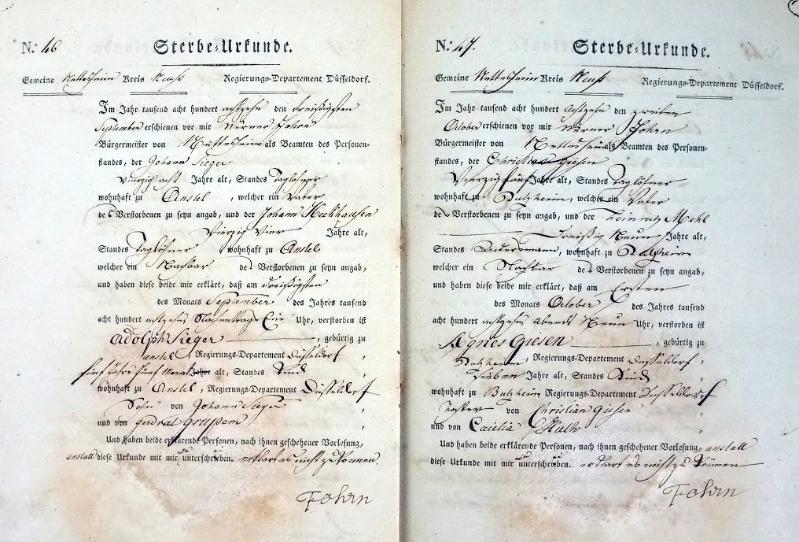 N.: 46
Sterbe-Urkunde.
Gemeine Nettesheim Kreis Neuß Regierungs-Departement Düsseldorf.
Im Jahr tausend acht hundert achtzehn den dreißigsten
September erschienen vor mir Werner Fohrn
Bürgermeister von Nettesheim als Beamten des Personen-
standes, der Johann Sieger
vierzig acht Jahre alt, Standes Taglöhner
wohnhaft zu Anstel, welcher ein Vater
des Verstorbenen zu seyn angab, und der Johann Heckhausen
vierzig vier Jahre alt,
Standes Taglöhner wohnhaft zu Anstel
welcher ein Nachbar des Verstorbenen zu seyn angab,
und haben diese beide mir erklärt, daß am dreißigsten
des Monats September des Jahres tausend
acht hundert achtzehn Nachmittags Ein Uhr, verstorben ist
Adolph Sieger, gebürtig zu
Anstel Regierungs-Departement Düsseldorf,
fünf Jahr fünf Monat Jahre alt, Standes Kind
wohnhaft zu Anstel, Regierungs-Departement Düsseldorf
Sohn von Johann Sieger
und von
Und haben beide erklärende Personen, nach ihnen geschehener Vorlesung, anstatt
diese Urkunde mit mir unterschrieben. erklärt es nicht zu können
Fohrn
N.: 47.
Sterbe-Urkunde.
Gemeine Nettesheim Kreis Neuß Regierungs-Departement Düsseldorf.
Im Jahr tausend acht hundert achtzehn den zweiten
October erschienen vor mir Werner Fohrn
Bürgermeister von Nettesheim als Beamten des Personen-
standes, der Christian Giesen
vierzig fünf Jahre alt, Standes Taglöhner
wohnhaft zu Butzheim, welcher ein Vater
des Verstorbenen zu seyn angab, und der Heinrich Mehl
dreißig Neun Jahre alt,
Standes Ackersmann, wohnhaft zu Butzheim
welcher ein Nachbar des Verstorbenen zu seyn angab,
und haben diese beide mir erklärt, daß am Ersten
des Monats October des Jahres tausend
acht hundert achtzehn abends Neun Uhr, verstorben ist
Agnes Giesen, gebürtig zu
Butzheim, Regierungs-Departement Düsseldorf,
Sieben Jahre alt, Standes Kind
wohnhaft zu Butzheim Regierungs-Departement Düsseldorf
Tochter von Christian Giesen
und von Cäcilia
Und haben beide erklärende Personen, nach ihnen geschehener Vorlesung, anstatt
diese Urkunde mit mir unterschrieben. erklärt es nicht zu können
Fohrn